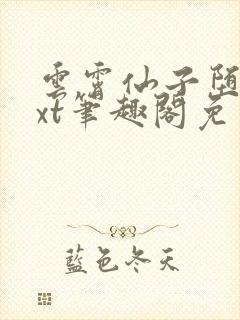 雲霄仙子堕
xt筆趣閣免
藍色冬天